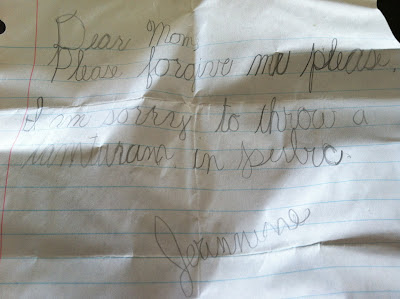 Dear Mom,
Please forgive me please.
I am sorry to throw a
tamturam in pulric.
Jeannesse